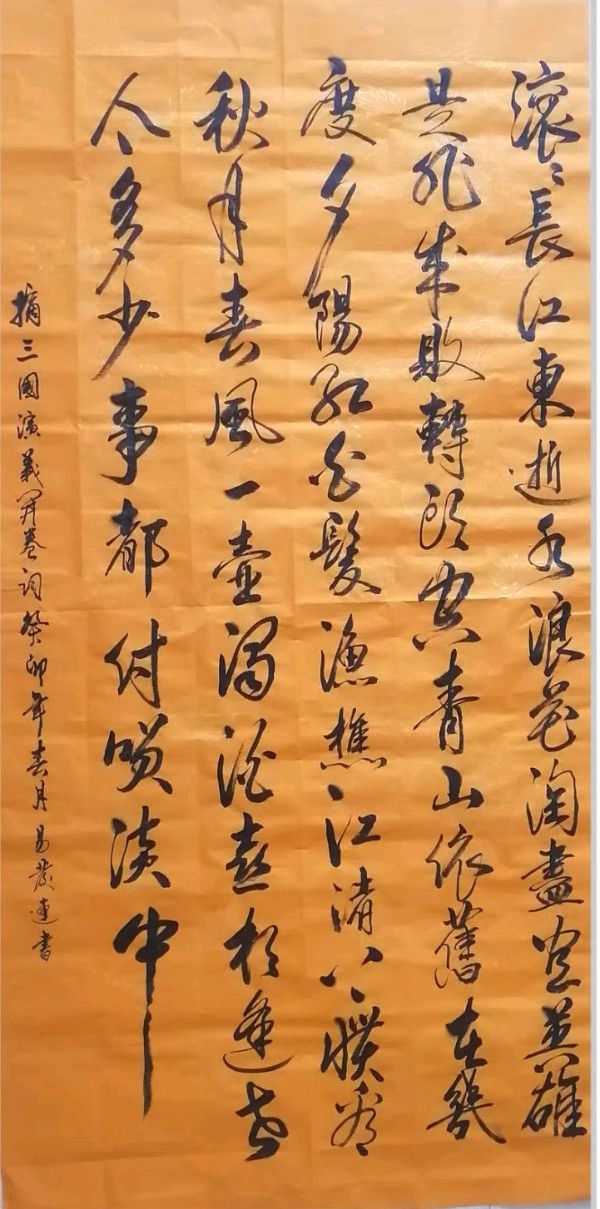 滚〻長江東逝水浪花淘盡英雄
是非成敗轉頭空青山依舊在幾
度夕陽紅白髮漁樵江渚上慣看
秋月春風一壺濁酒喜相逢古
今多少事都付笑談中
摘三國演義開卷詞癸卯年春月易發連書